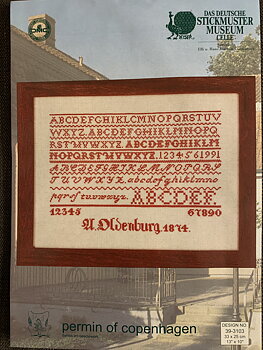 DMC
DAS DEUTSCHE
STICKMUSTER
MUSEUM
CELLE
ABCDEFGHIJKLMNOPQRSTUV
WXYZ. ABCDEFGHIJKLMNOPQ
RSTUVWXYZ. ABCDEFGHIJKLM
NOPQRSTUVWXYZ. 1234561991
ABCDEFGHIJKLMNOPQRS
TUVWXYZ. abcdefghiklmno
pqrſstuvwxyz. ABCDEF.
12345 67890
A. Oldenburg 1874.
permin of copenhagen
DESIGN NO
39-3103
33 x 25 cm
13" x 10"